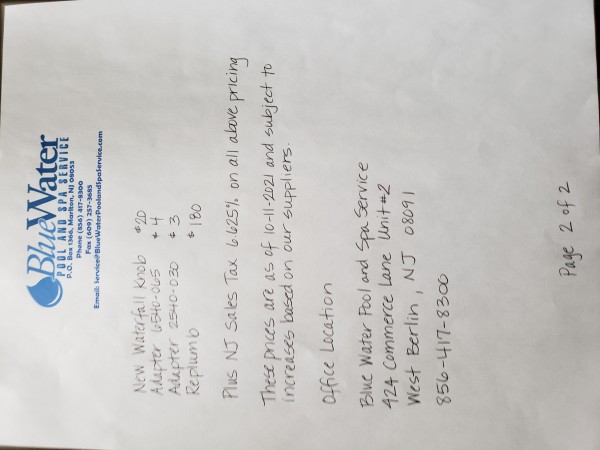 BlueWater
POOL AND SPA SERVICE
P.O. Box 1366, Marlton, NJ 08053
Phone (856) 417-8300
Fax (609) 257-3685
Email: Service@BlueWaterPoolandSpaService.com
New Waterfall Knob $20
Adapter 6540-065 $ 4
Adapter 2540-030 $ 3
Replumb $ 180
Plus NJ Sales Tax 6.625% on all above pricing
These prices are as of 10-11-2021 and subject to
increases based on our suppliers.
Office Location
Blue Water Pool and Spa Service
424 Commerce Lane Unit #2
West Berlin, NJ 08091
856-417-8300
Page 2 of 2